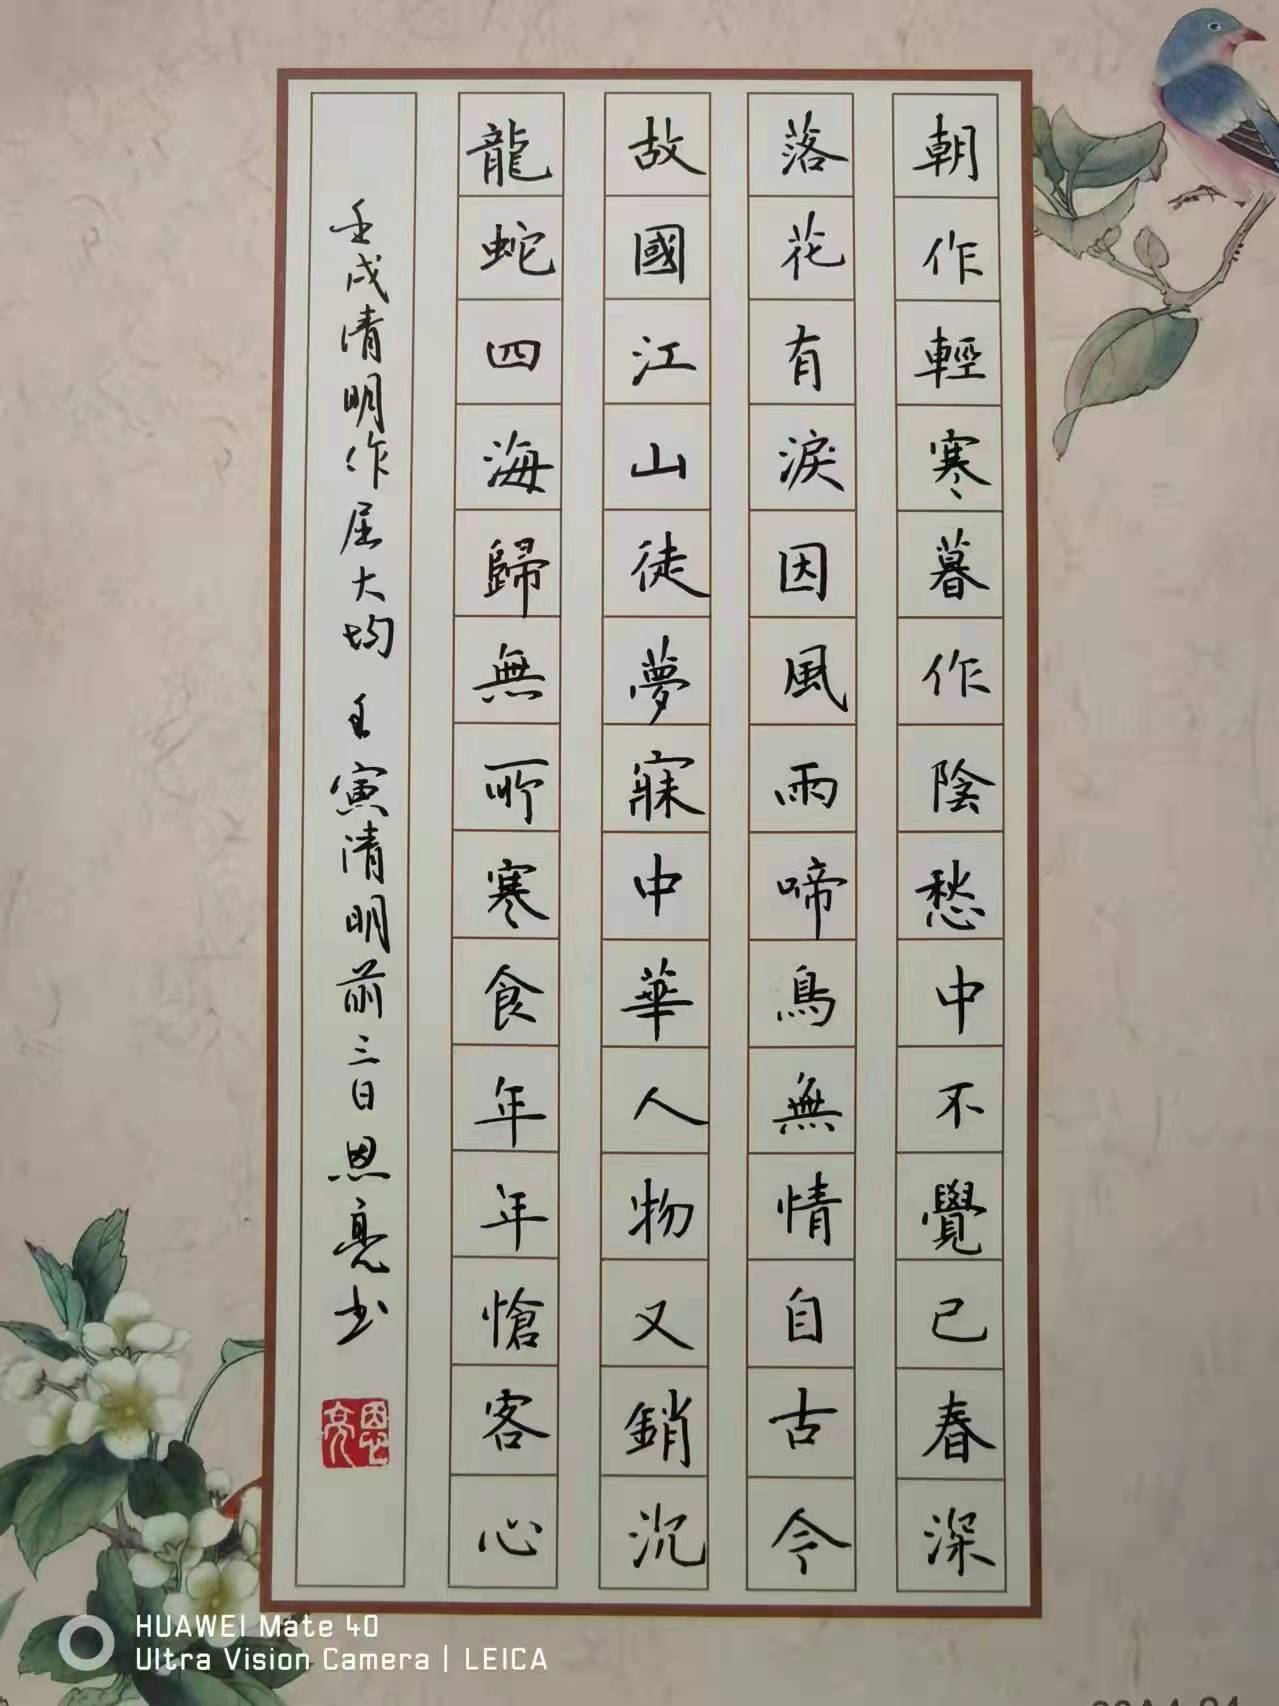 朝作輕寒暮作陰愁中不覺已春深
落花有淚因風雨啼鳥無情自古今
故國江山徒夢寐中華人物又銷沉
龍蛇四海歸無所寒食年年愴客心
壬戌清明作屈大均 壬寅清明前三日恩亮书
恩亮
HUAWEI Mate 40
Ultra Vision Camera | LEICA